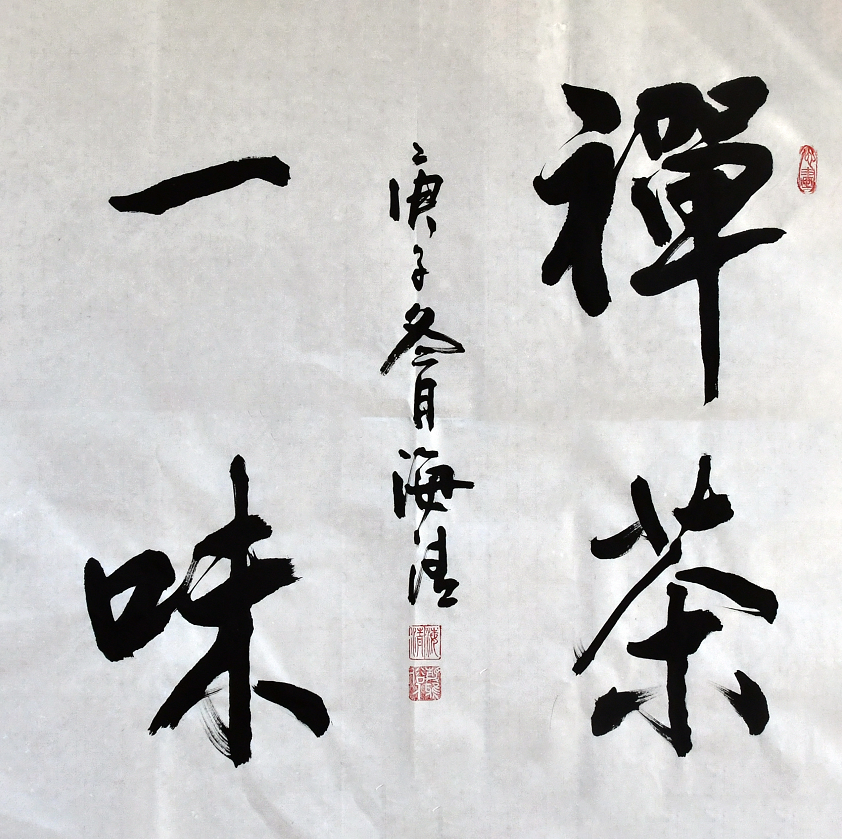 禪茶
一味
庚子冬月海清
海清